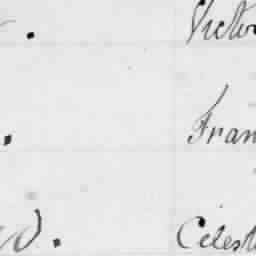 . Victo
. Fran
d. Célest